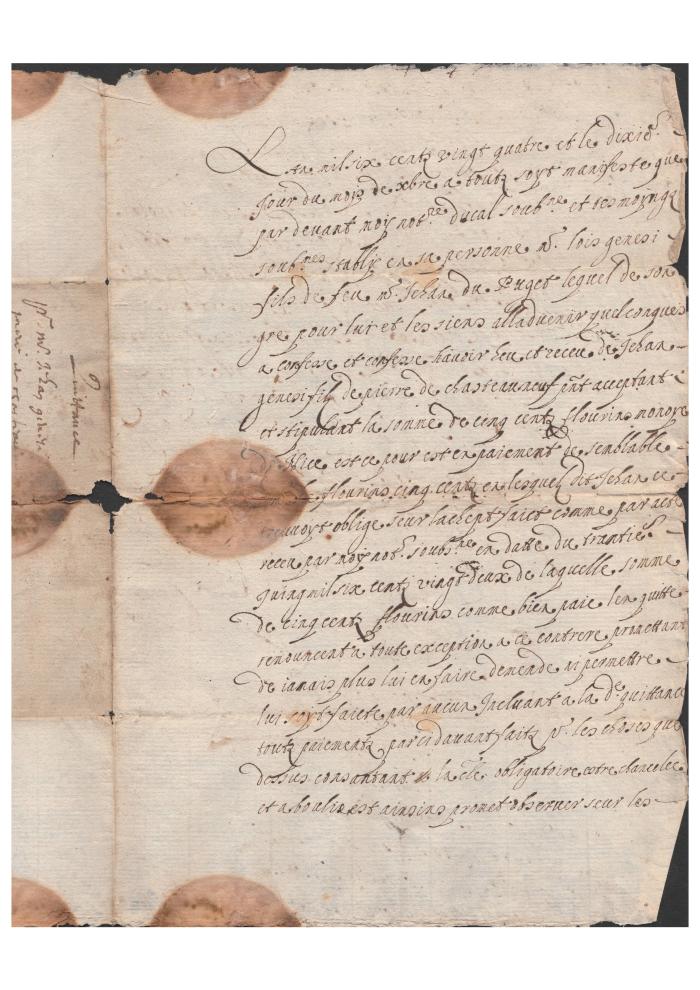 L'an mil six centz vingt quatre et le dixie.
Jour du moys de xbre a toutz soyt manifeste que
par devant noy not.re ducal soub.ne et tesmoingz
soub.nes stably en sa personne m.e lois genesi
filz de feu m.e Jehan du Puget lequel de son
gre pour lui et les siens alladuenir quelconques
a confesse et confesse havoir heu et receu de Jehan
genesi filz de pierre de chasteauneuf pnt acceptant
et stipulant la somme de cinq centz flourins monoye
de Nice est ce pour est en paiement de semblable
flourins cinq centz en lesquel dit Jehan ce
trouvoyt oblige seur lachept faict comme par acte
receu par noy not.e soub.ne en datte du trantie.
quing mil six centz vingt deux de laquelle somme
de cinq centz flourins comme bien paie len quitte
renouncent a toute exception a ce contrere promettant
de iamais plus lui en faire demende ni permettre
lui soyt faicte par aucun Incluant a la d.e quittance
toutz paiementz par cidauant faitz les choses que
dessus consantant la obligatoire estre chancelee
et abolie est ainsins promet observer seur les
Quittance
Jehan genesi